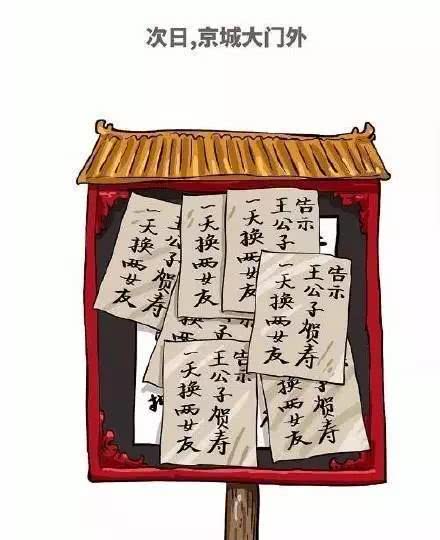 次日,京城大门外
告示
王公子
一天换两女友
一天换两女友
贺寿
一天换两女友
告示
王公子贺寿
一天换两女友
告示
王公子贺寿
一天换两女友
贺寿
换两女友